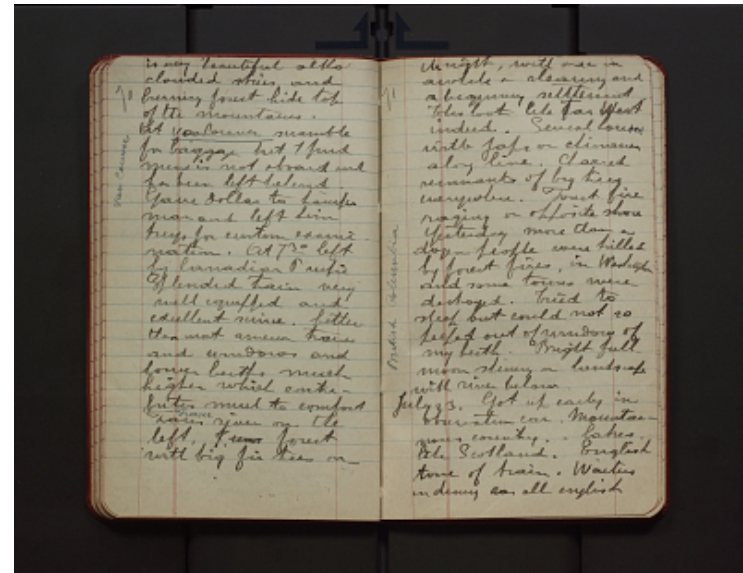 is very beautiful altho
clouded skies and
burning forest hide top
of the mountains.
At Vancouver scramble
for baggage but I find
mine is not aboard and
has been left behind
Gave dollar to
man and left him
keys for custom exami-
nation. At 7 30 left
by Canadian Pacific
Splended train very
well equipped and
excellent service. Better
than most american trains
and windows and
lower berths much
higher which contri-
butes much to comfort
river on the
left, forest
with big fir trees on
Vancouver
70
71
British Columbia
the right, with once in
awhile a clearing and
a beginning settlement
This looks like Far West
indeed. Several
with Japs or chinamen
along line. Charred
remnants of big trees
everywhere. Forest fire
raging on opposite shore
Yesterday more than a
dozen people were killed
by forest fires, in
and some towns were
destroyed. Tried to
sleep but could not so
peeped out of window of
my berth. Bright full
moon shining on landscape
with river below
July 23. Got up early in
observation car. Mountai-
nous country. Lakes.
like Scotland. English
tone of train. Waiters
in dining car all english